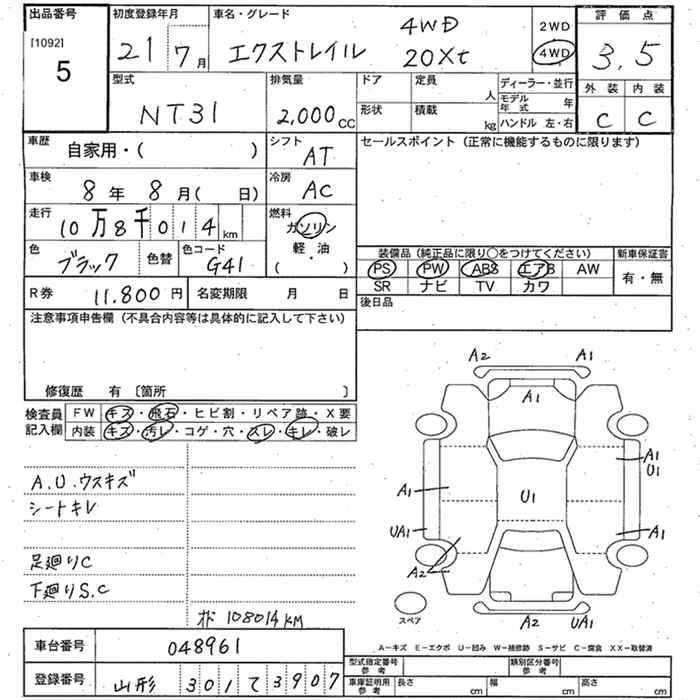 出品番号
[1092]
5
初度登録年月
21 7月
車名・グレード
4WD
エクストレイル 20Xt
2WD
4WD
評価点
3,5
外装 内装
C C
型式
NT31
排気量
2,000cc
ドア 定員
人
形状 積載
kg
ディーラー・並行
モデル年式 年
ハンドル 左・右
車歴
自家用・( )
シフト
AT
セールスポイント (正常に機能するものに限ります)
車検
8年 8月( 日)
冷房
AC
走行
10万8千014km
燃料
ガソリン
軽・油
( )
色
ブラック
色替
色コード
G41
装備品 (純正品に限り○をつけてください)
新車保証書
PS PW ABS エアB AW
有・無
SR ナビ TV カワ
R券 11.800円 名変期限 月 日
後日品
注意事項申告欄 (不具合内容等は具体的に記入して下さい)
修復歴 有 [箇所 ]
検査員記入欄
FW キズ・飛石・ヒビ割・リペア跡・X要
内装 キズ・汚レ・コゲ・穴・スレ・キレ・破レ
A.U.ウスキズ
シートキレ
足廻りC
下廻りS.C
108014KM
A2 A1
A1
A1
U1
A1
U1
UA1
A1
A2
A2 UA1
スペア
A-キズ E-エクボ U-凹み W-補修跡 S-サビ C-腐食 XX-取替済
車台番号 048961
登録番号 山形 301て3907
型式指定番号 参考
類別区分番号 参考
車庫証明用 参考
長さ cm 幅 cm 高さ cm